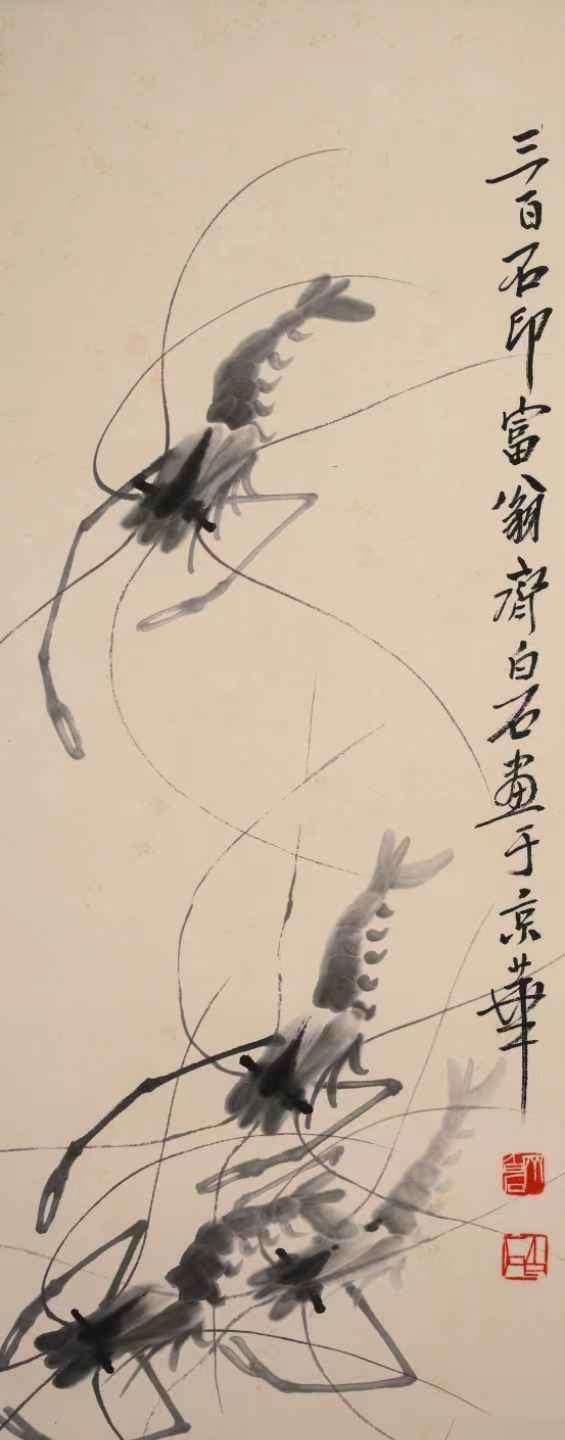 三百石印富翁齊白石画于京華